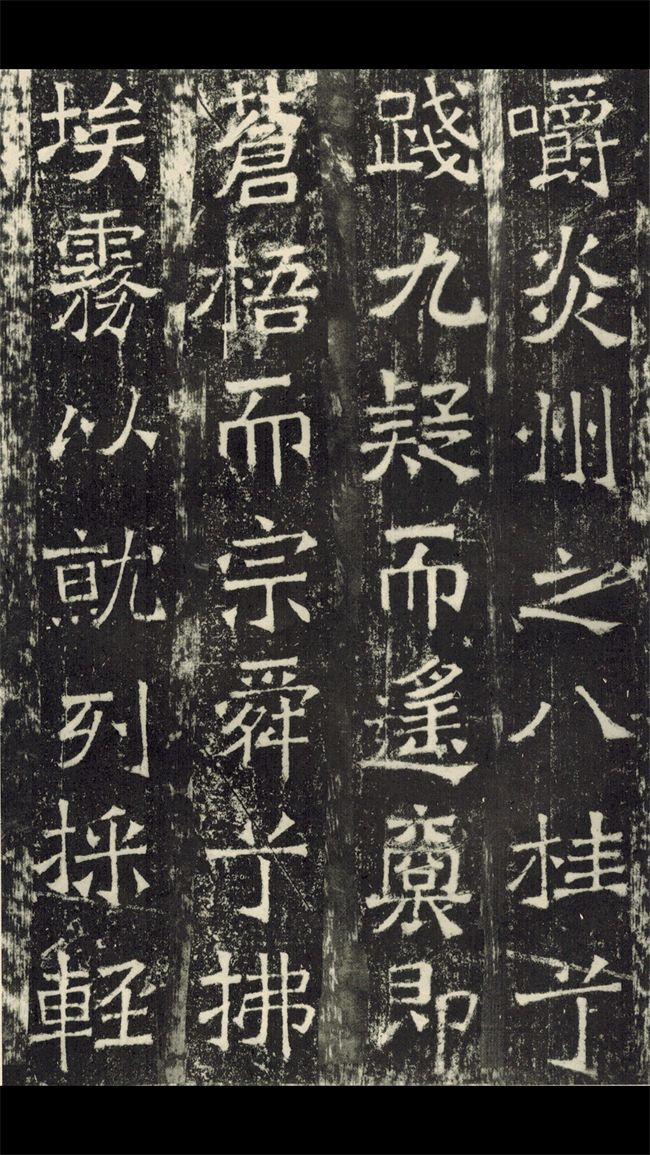 嚼炎州之八桂兮
踐九疑而遙即
蒼梧而宗舜兮拂
埃霧以就列採軽